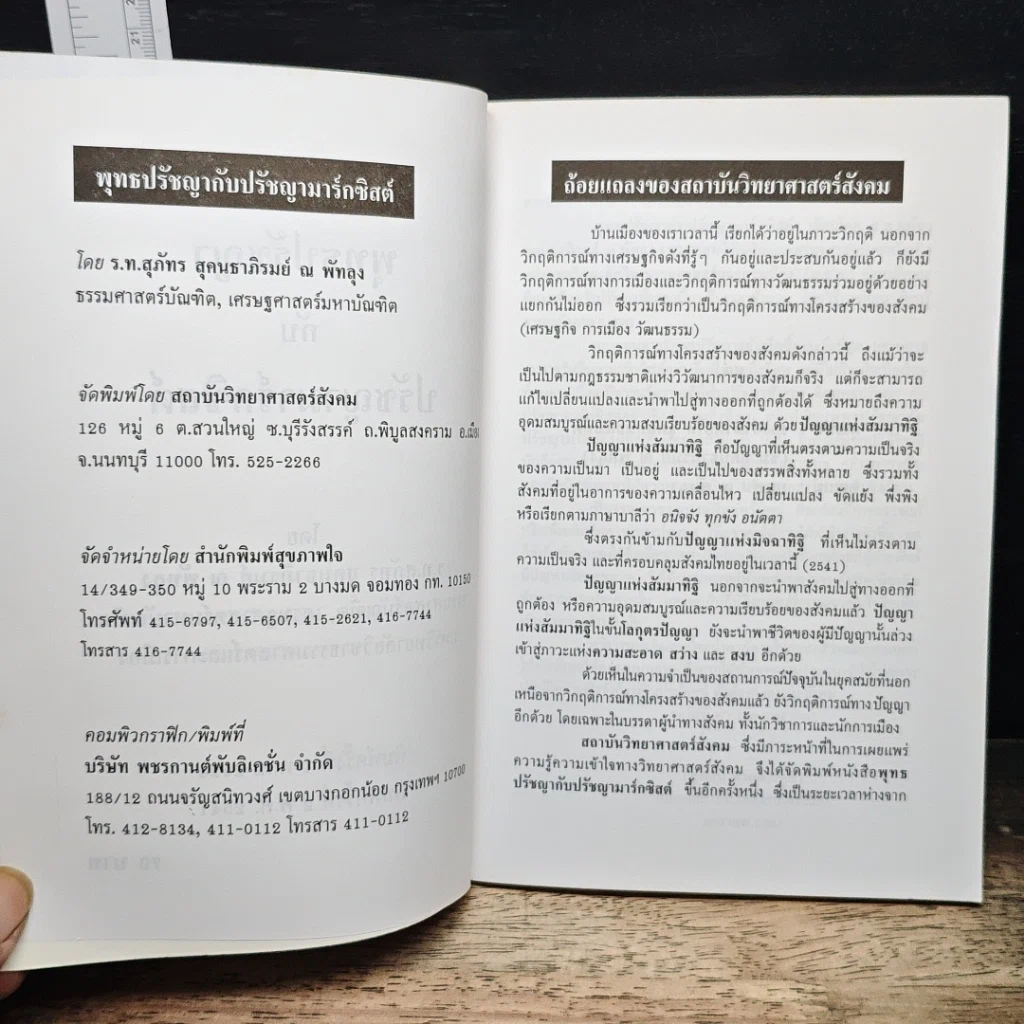 พุทธปรัชญากับปรัชญามาร์กซิสต์
โดย ร.ท.สุภัทร สุคนธาภิรมย์ ณ พัทลุง
ธรรมศาสตร์บัณฑิต, เศรษฐศาสตร์มหาบัณฑิต
จัดพิมพ์โดย สถาบันวิทยาศาสตร์สังคม
126 หมู่ 6 ต.สวนใหญ่ ซ.บุรีรังสรรค์ ถ.พิบูลสงคราม อ.เมือง
จ.นนทบุรี 11000 โทร. 525-2266
จัดจำหน่ายโดย สำนักพิมพ์สุขภาพใจ
14/349-350 หมู่ 10 พระราม 2 บางมด จอมทอง กท. 10150
โทรศัพท์ 415-6797, 415-6507, 415-2621, 416-7744
โทรสาร 416-7744
คอมพิวกราฟิก/พิมพ์ที่
บริษัท พชรกานต์พับลิเคชั่น จำกัด
188/12 ถนนจรัญสนิทวงศ์ เขตบางกอกน้อย กรุงเทพฯ 10700
โทร. 412-8134, 411-0112 โทรสาร 411-0112
ถ้อยแถลงของสถาบันวิทยาศาสตร์สังคม
บ้านเมืองของเราเวลานี้ เรียกได้ว่าอยู่ในภาวะวิกฤติ นอกจาก
วิกฤติการณ์ทางเศรษฐกิจดังที่รู้ๆ กันอยู่และประสบกันอยู่แล้ว ก็ยังมี
วิกฤติการณ์ทางการเมืองและวิกฤติการณ์ทางวัฒนธรรมร่วมอยู่ด้วยอย่าง
แยกกันไม่ออก ซึ่งรวมเรียกว่าเป็นวิกฤติการณ์ทางโครงสร้างของสังคม
(เศรษฐกิจ การเมือง วัฒนธรรม)
วิกฤติการณ์ทางโครงสร้างของสังคมดังกล่าวนี้ ถึงแม้ว่าจะ
เป็นไปตามกฎธรรมชาติแห่งวิวัฒนาการของสังคมก็จริง แต่ก็จะสามารถ
แก้ไขเปลี่ยนแปลงและนำพาไปสู่ทางออกที่ถูกต้องได้ ซึ่งหมายถึงความ
อุดมสมบูรณ์และความสงบเรียบร้อยของสังคม ด้วยปัญญาแห่งสัมมาทิฐิ
ปัญญาแห่งสัมมาทิฐิ คือปัญญาที่เห็นตรงตามความเป็นจริง
ของความเป็นมา เป็นอยู่ และเป็นไปของสรรพสิ่งทั้งหลาย ซึ่งรวมทั้ง
สังคมที่อยู่ในอาการของความเคลื่อนไหว เปลี่ยนแปลง ขัดแย้ง พึ่งพิง
หรือเรียกตามภาษาบาลีว่า อนิจจัง ทุกขัง อนัตตา
ซึ่งตรงกันข้ามกับปัญญาแห่งมิจฉาทิฐิ ที่เห็นไม่ตรงตาม
ความเป็นจริง และที่ครอบคลุมสังคมไทยอยู่ในเวลานี้ (2541)
ปัญญาแห่งสัมมาทิฐิ นอกจากจะนำพาสังคมไปสู่ทางออกที่
ถูกต้อง หรือความอุดมสมบูรณ์และความเรียบร้อยของสังคมแล้ว ปัญญา
แห่งสัมมาทิฐิในขั้นโลกุตรปัญญา ยังจะนำพาชีวิตของผู้มีปัญญานั้นล่วง
เข้าสู่ภาวะแห่งความสะอาด สว่าง และ สงบ อีกด้วย
ด้วยเห็นในความจำเป็นของสถานการณ์ปัจจุบันในยุคสมัยที่นอก
เหนือจากวิกฤติการณ์ทางโครงสร้างของสังคมแล้ว ยังวิกฤติการณ์ทางปัญญา
อีกด้วย โดยเฉพาะในบรรดาผู้นำทางสังคม ทั้งนักวิชาการและนักการเมือง
สถาบันวิทยาศาสตร์สังคม ซึ่งมีภาระหน้าที่ในการเผยแพร่
ความรู้ความเข้าใจทางวิทยาศาสตร์สังคม จึงได้จัดพิมพ์หนังสือพุทธ
ปรัชญากับปรัชญามาร์กซิสต์ ขึ้นอีกครั้งหนึ่ง ซึ่งเป็นระยะเวลาห่างจาก
21